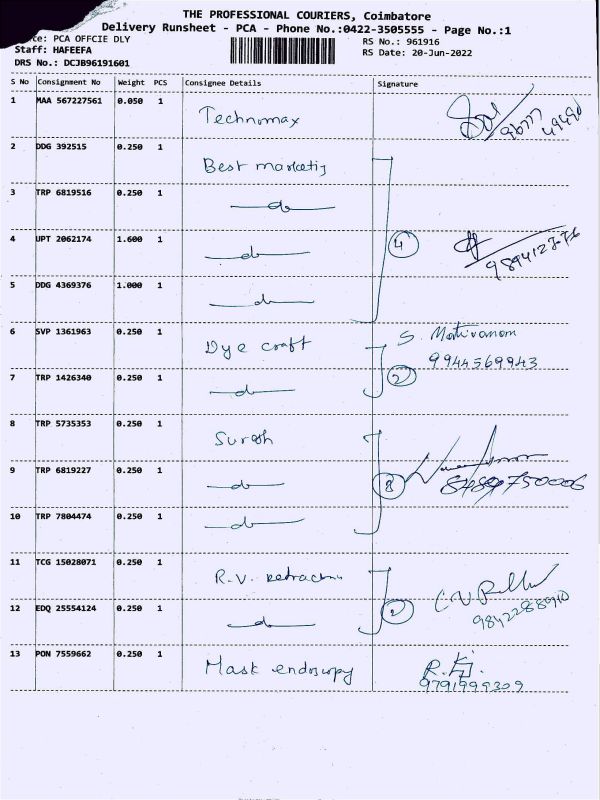 THE PROFESSIONAL COURIERS, Coimbatore
Delivery Runsheet - PCA - Phone No.:0422-3505555 - Page No.:1
PCA OFFCIE DLY RS No.: 961916
Staff: HAFEEFA RS Date: 20-Jun-2022
DRS No.: DCJB96191601
S No Consignment No Weight PCS Consignee Details Signature
1 MAA 567227561 0.050 1 Technomax
2 DDG 392515 0.250 1 Best
3 TRP 6819516 0.250 1 do
4 UPT 2062174 1.600 1 do 4
5 DDG 4369376 1.000 1 do
6 SVP 1361963 0.250 1 Dye craft S.
9944569943
7 TRP 1426340 0.250 1 do 2
8 TRP 5735353 0.250 1 Suresh
9 TRP 6819227 0.250 1 do
10 TRP 7804474 0.250 1 do
11 TCG 15028071 0.250 1 R.V.
12 EDQ 25554124 0.250 1 do 2
13 PON 7559662 0.250 1 Mask R.
9791999309